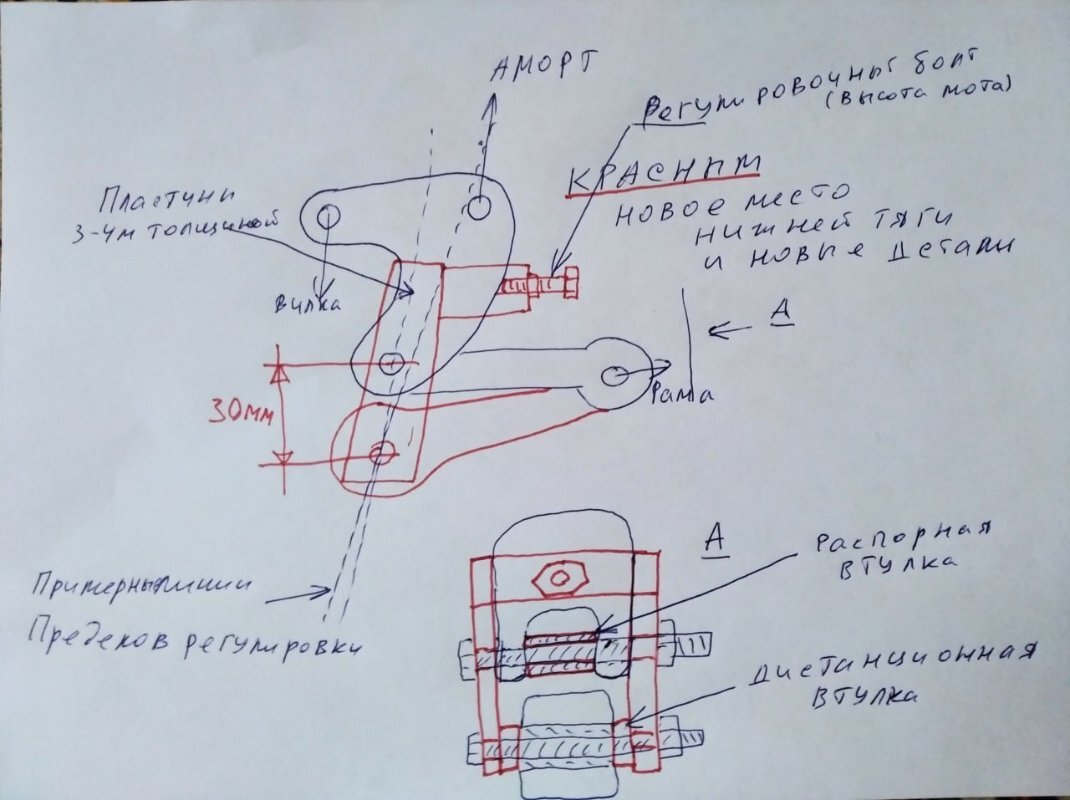 АМОРТ
Регулировочный болт
(высота мота)
КРАСНЫМ
новое место
нижней тяги
и новые детали
Пластины
3-4м толщиной
Вилка
А
Рама
30мм
Примерные линии
Пределов регулировки
А
Распорная
втулка
Дистанционная
втулка